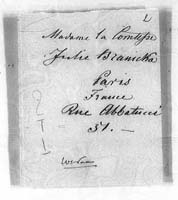 L
Madame la Comtesse
Julie Branicka
Paris
France
Rue Abbatucci
51. —